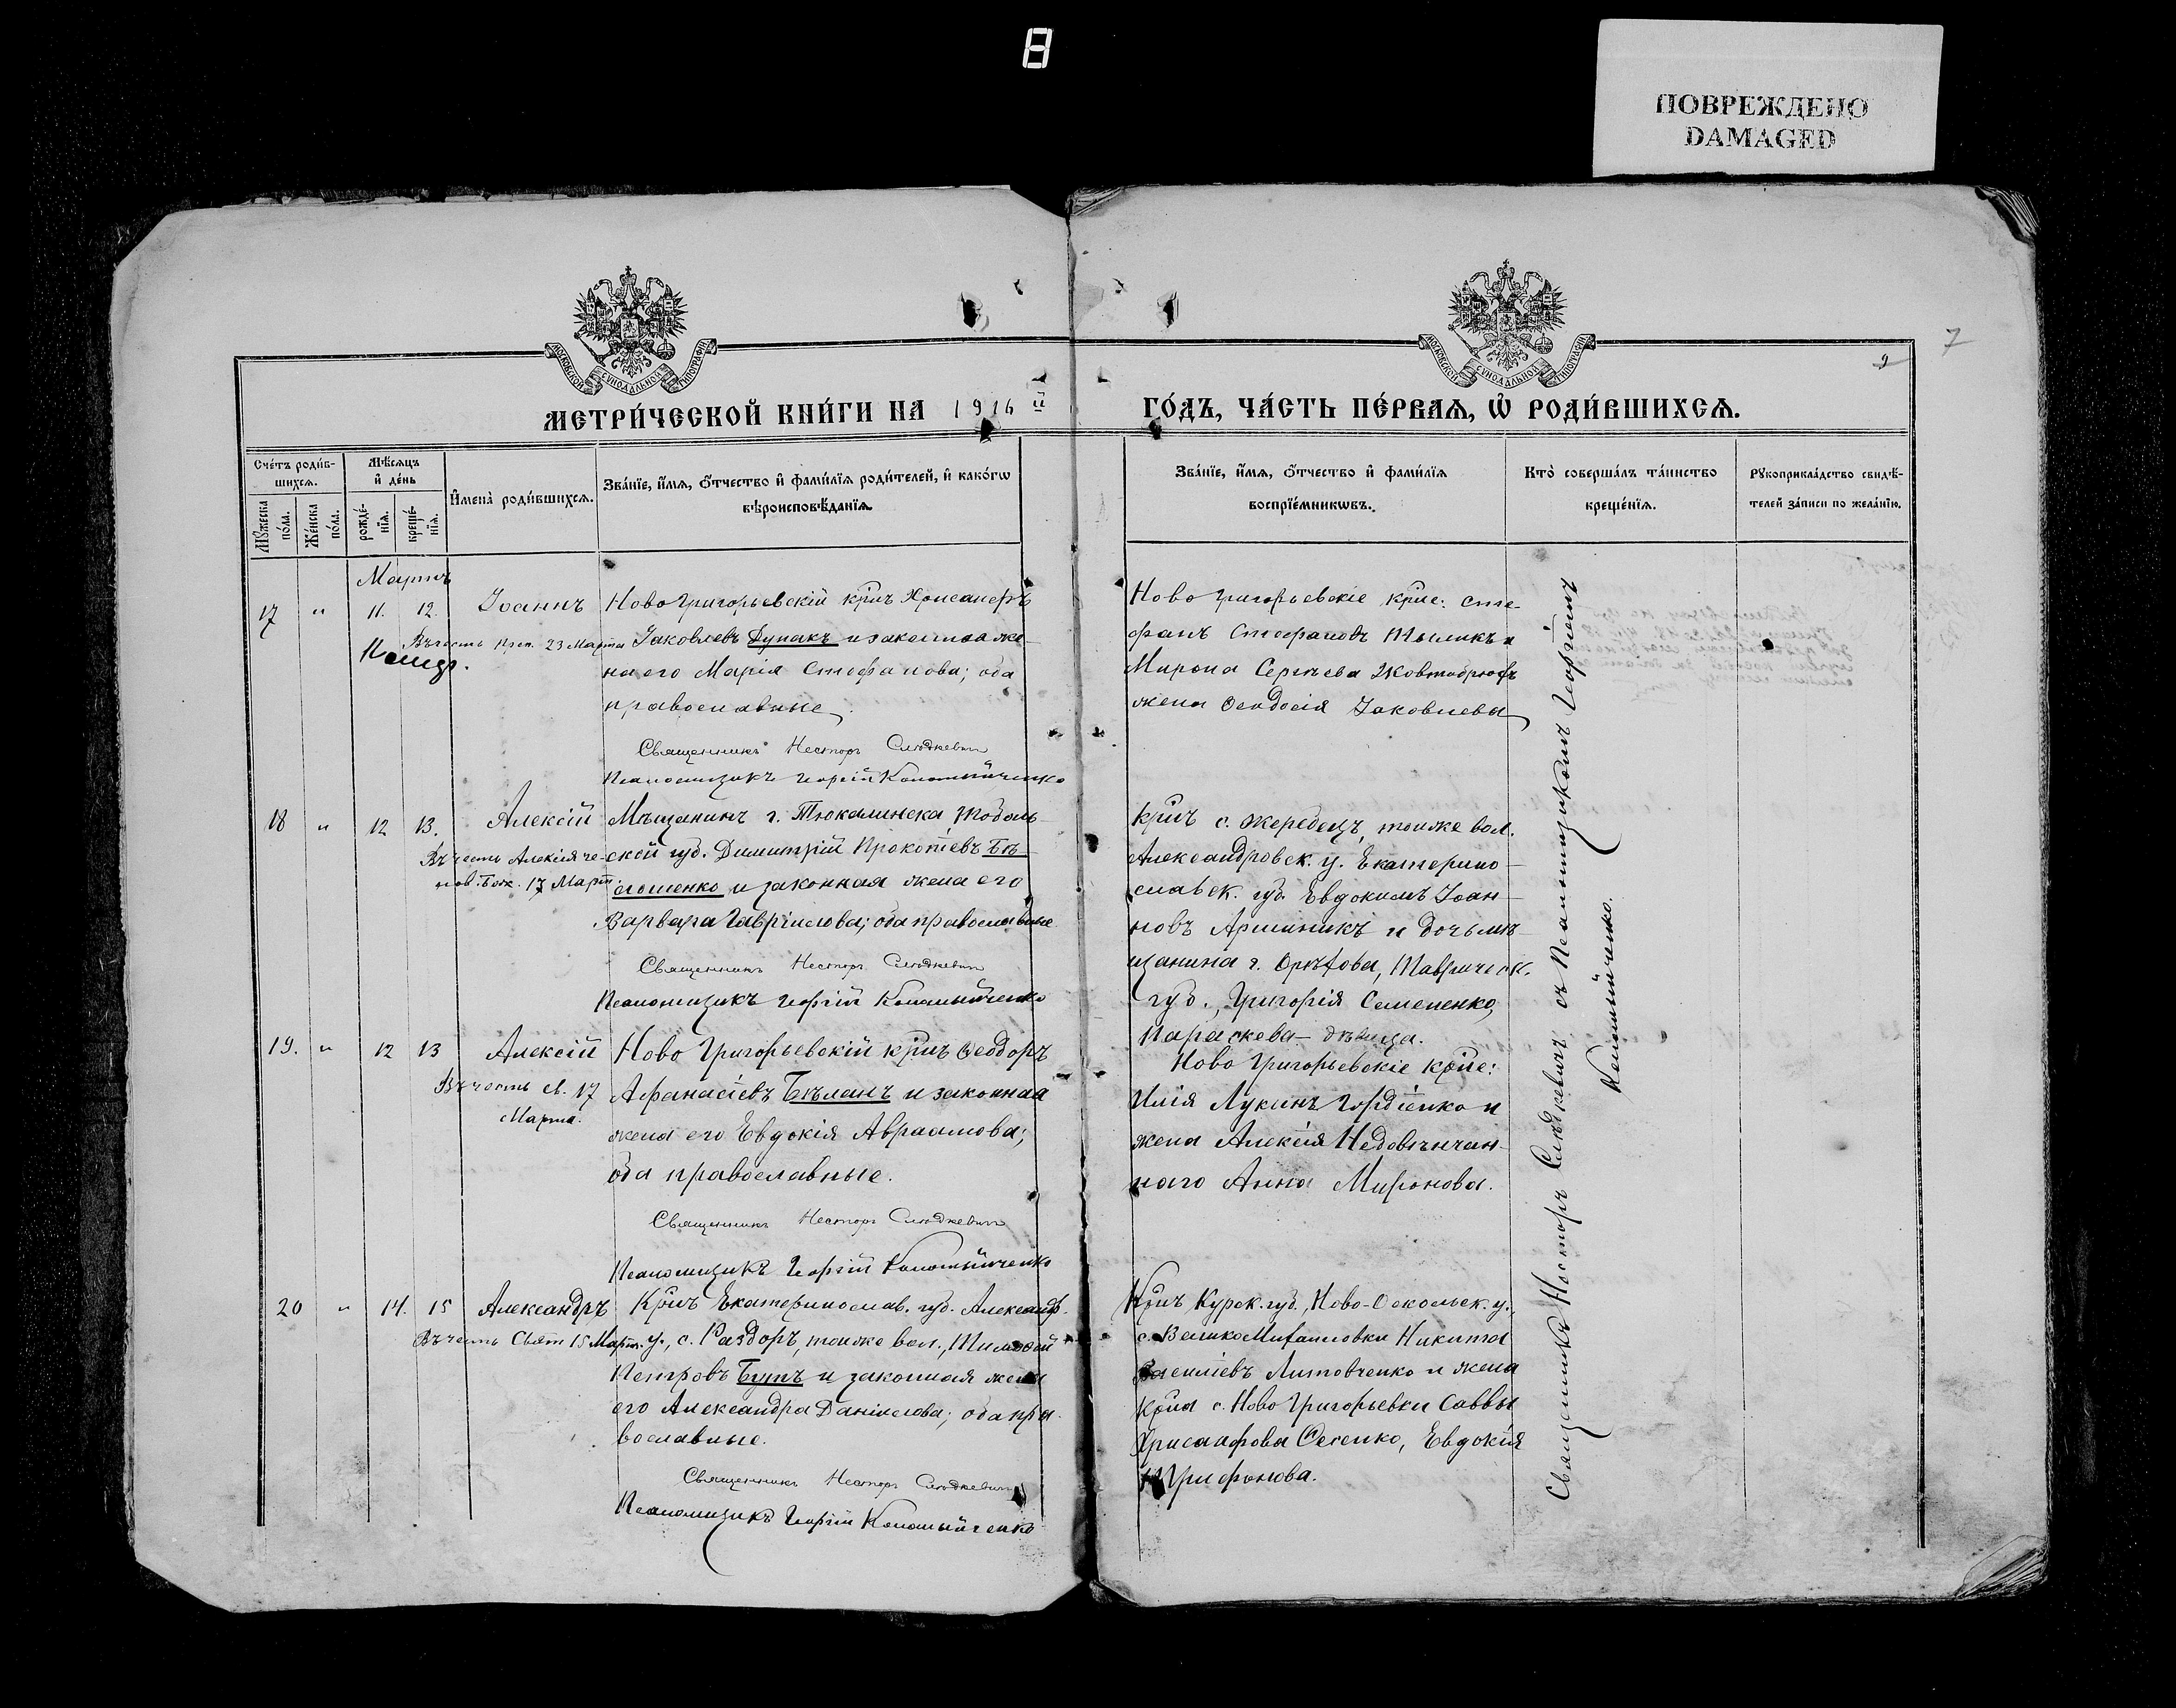 8
ПОВРЕЖДЕНО
DAMAGED
МОСКОВСКОЙ СУНОДАЛЬНОЙ ТИПОГРАФІИ
МОСКОВСКОЙ СУНОДАЛЬНОЙ ТИПОГРАФІИ
7
МЕТРИ́ЧЕСКОЙ КНИ́ГИ НА 1916 й
ГО́ДЪ, ЧА́СТЬ ПЕ́РВАѦ, Ѡ РОДИ́ВШИХСѦ.
Сче́тъ роди́в-
шихсѧ.
Мꙋ́жеска
по́ла.
Же́нска
по́ла.
Мѣ́сѧцъ
и҆ де́нь
рожде́-
нїѧ.
креще́-
нїѧ.
И҆мена̀ роди́вшихсѧ.
Зва́нїе, и҆́мѧ, ѻ҆́тчество и҆ фами́лїѧ роди́телей, и҆ како́гѡ
вѣроисповѣ́данїѧ.
Зва́нїе, и҆́мѧ, ѻ҆́тчество и҆ фами́лїѧ
воспрїе́мникѡвъ.
Кто̀ соверша́лъ та́инство
креще́нїѧ.
Рꙋкоприкла́дство свидѣ́-
телей за́писи по жела́нїю.
Мартъ
17 " 11. 12. Іоаннъ
Въ честь преп. 23 Марта
Ново Григорьевскій кр̃нъ Хрисанфъ
Іаковлевъ Дунакъ и законная же-
на его Марія Стефанова; оба
православные.
Священникъ Несторъ Слюдкевич
Псаломщикъ Георгій Коломыйченко
Ново Григорьевскіе крне: Сте-
фанъ Стефановъ и
Мирона Сергѣева Жовтобрюхъ
жена Ѳеодосія Іаковлева
18 " 12 13. Алексій
Въ честь Алексія че-
лов. Бож. 17 Март.
Мѣщанинъ г. Тюкалинска Тоболь-
ской губ. Димитрій Прокопіевъ Бѣ-
лошенко и законная жена его
Варвара Гавріилова; оба православные.
Священникъ Несторъ Слюдкевич
Псаломщикъ Георгій Коломыйченко
Крнъ с. Жеребецъ, тоиже вол.
Александровск. у. Екатерино-
славск. губ. Евдокимъ Іоан-
новъ Аршиникъ и дочь мѣ-
щанина г. Орѣхова, Таврическ.
губ., Григорія Семененко,
Параскева – дѣвица.
19. " 12 13 Алексій
Въ честь св. 17
Марта.
Ново Григорьевскій крнъ Ѳеодоръ
Афанасіевъ Бѣланъ и законная
жена его Евдокія Авраамова;
оба православные.
Священникъ Несторъ Слюдкевич
Псаломщикъ Георгій Коломыйченко
Ново Григорьевскіе крне:
Илія Лукинъ Гордіенко и
жена Алексія Недовѣнчан-
наго Анна Миронова.
20 " 14. 15 Александръ
Въ честь Свят. 15 Март.
Крнъ Екатеринослав. губ. Александр.
у., с. Раздоръ, тоиже вол., Тимоѳей
Петровъ Бутъ и законная жена
его Александра Даніилова; оба пра-
вославные.
Священникъ Несторъ Слюдкевич
Псаломщикъ Георгій Коломыйченко
Крнъ Курск. губ., Ново-Оскольск. у.,
с. Велико Михаиловки Никита
Василіевъ Литовченко и жена
крна с. Ново Григорьевки Саввы
Хрисанфова Ѳесенко, Евдокія
Трифонова.
Священникъ Несторъ Слюдкевичъ съ Псаломщикомъ Георгіемъ
Коломыйченко.